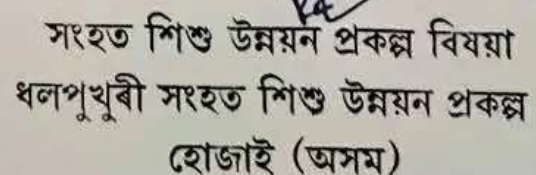 সংহত শিশু উন্নয়ন প্ৰকল্প বিষয়া
ধলপুখুৰী সংহত শিশু উন্নয়ন প্ৰকল্প
হোজাই (অসম)